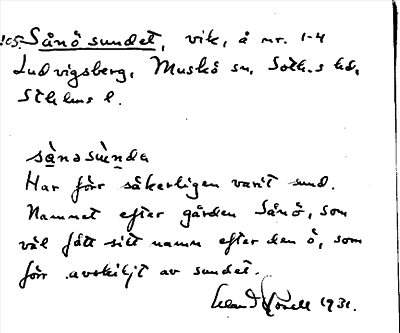 105. Sånösundet, vik, å nr. 1-4
Ludvigsberg, Muskö sn, Soth.s hd,
Sthlms l.
sånasùnda
Har förr säkerligen varit sund.
Namnet efter gården Sånö, som
väl fått sitt namn efter den ö, som
förr avskiljt av sundet.
1931.